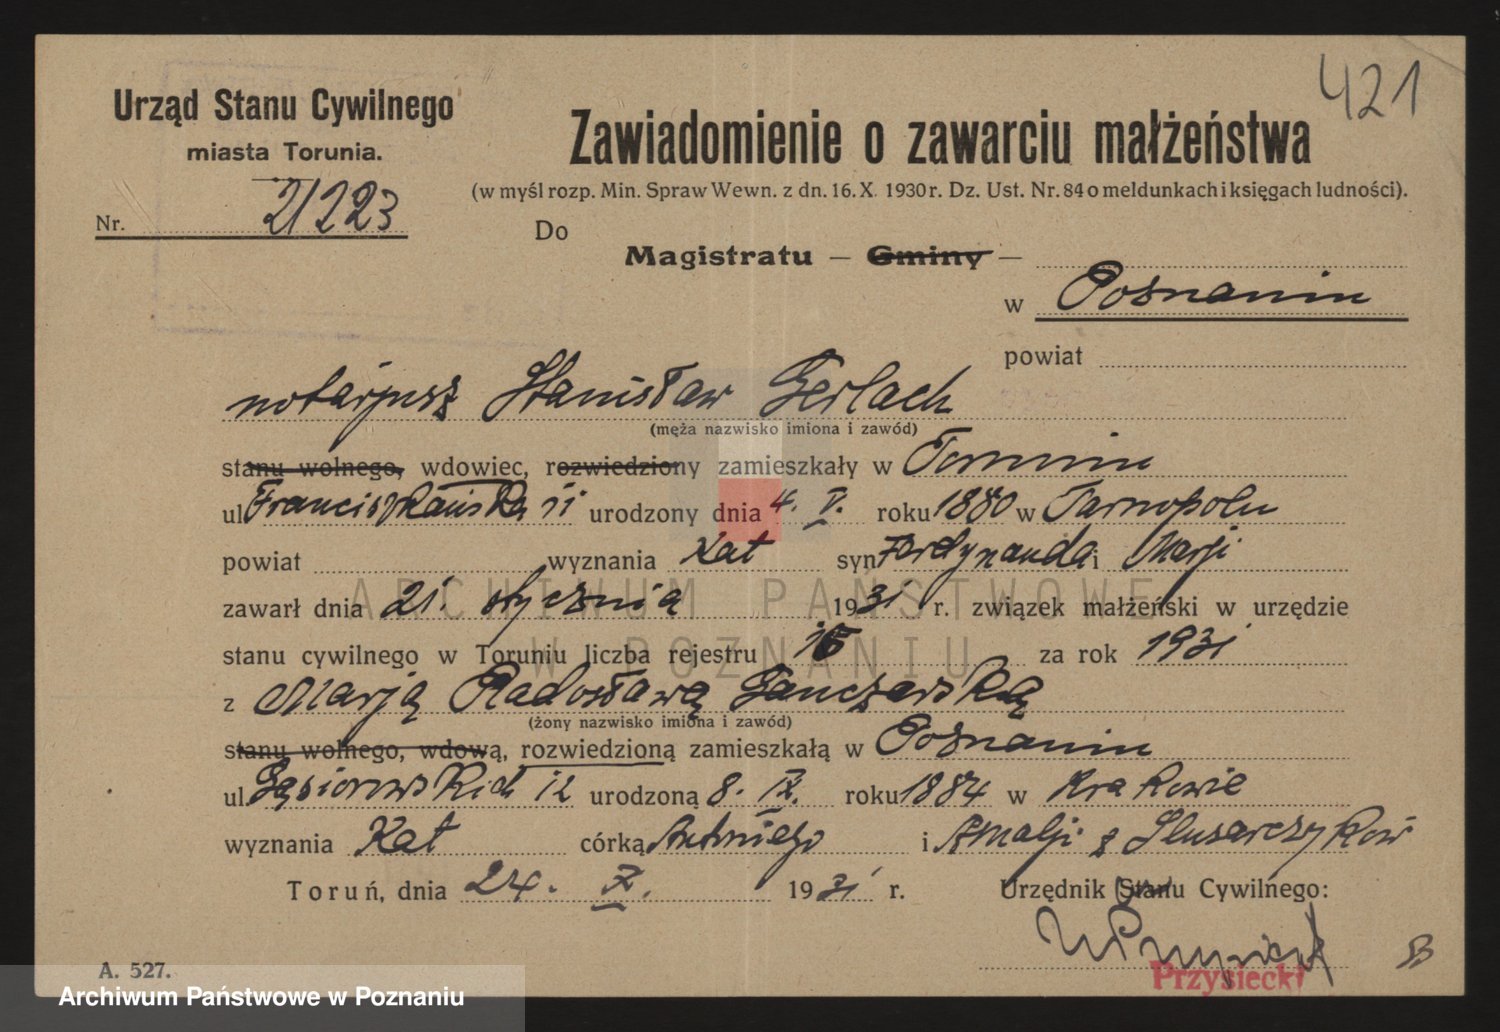 421
Urząd Stanu Cywilnego
miasta Torunia.
Nr. 21223
Zawiadomienie o zawarciu małżeństwa
(w myśl rozp. Min. Spraw Wewn. z dn. 16. X. 1930 r. Dz. Ust. Nr. 84 o meldunkach i księgach ludności).
Do
Magistratu — Gminy —
w Poznaniu
powiat
notarjusz Stanisław Gerlach
(męża nazwisko imiona i zawód)
stanu wolnego, wdowiec, rozwiedziony zamieszkały w Toruniu
ul Franciszkańska 11 urodzony dnia 4. V. roku 1880 w Tarnopolu
powiat wyznania Kat syn Ferdynanda i Marji
zawarł dnia 21. stycznia 1931 r. związek małżeński w urzędzie
stanu cywilnego w Toruniu liczba rejestru 16 za rok 1931
z Marją Radosławą Ganczarską
(żony nazwisko imiona i zawód)
stanu wolnego, wdową, rozwiedzioną zamieszkałą w Poznaniu
ul. Gąsiorowskich 12 urodzoną 8. IX. roku 1884 w Krakowie
wyznania Kat córką Antoniego i Amalji z Slusarczyków
Toruń, dnia 24. X. 1931 r. Urzędnik Stanu Cywilnego:
Przysiecki
A. 527.
ARCHIWUM PAŃSTWOWE
W POZNANIU
Archiwum Państwowe w Poznaniu